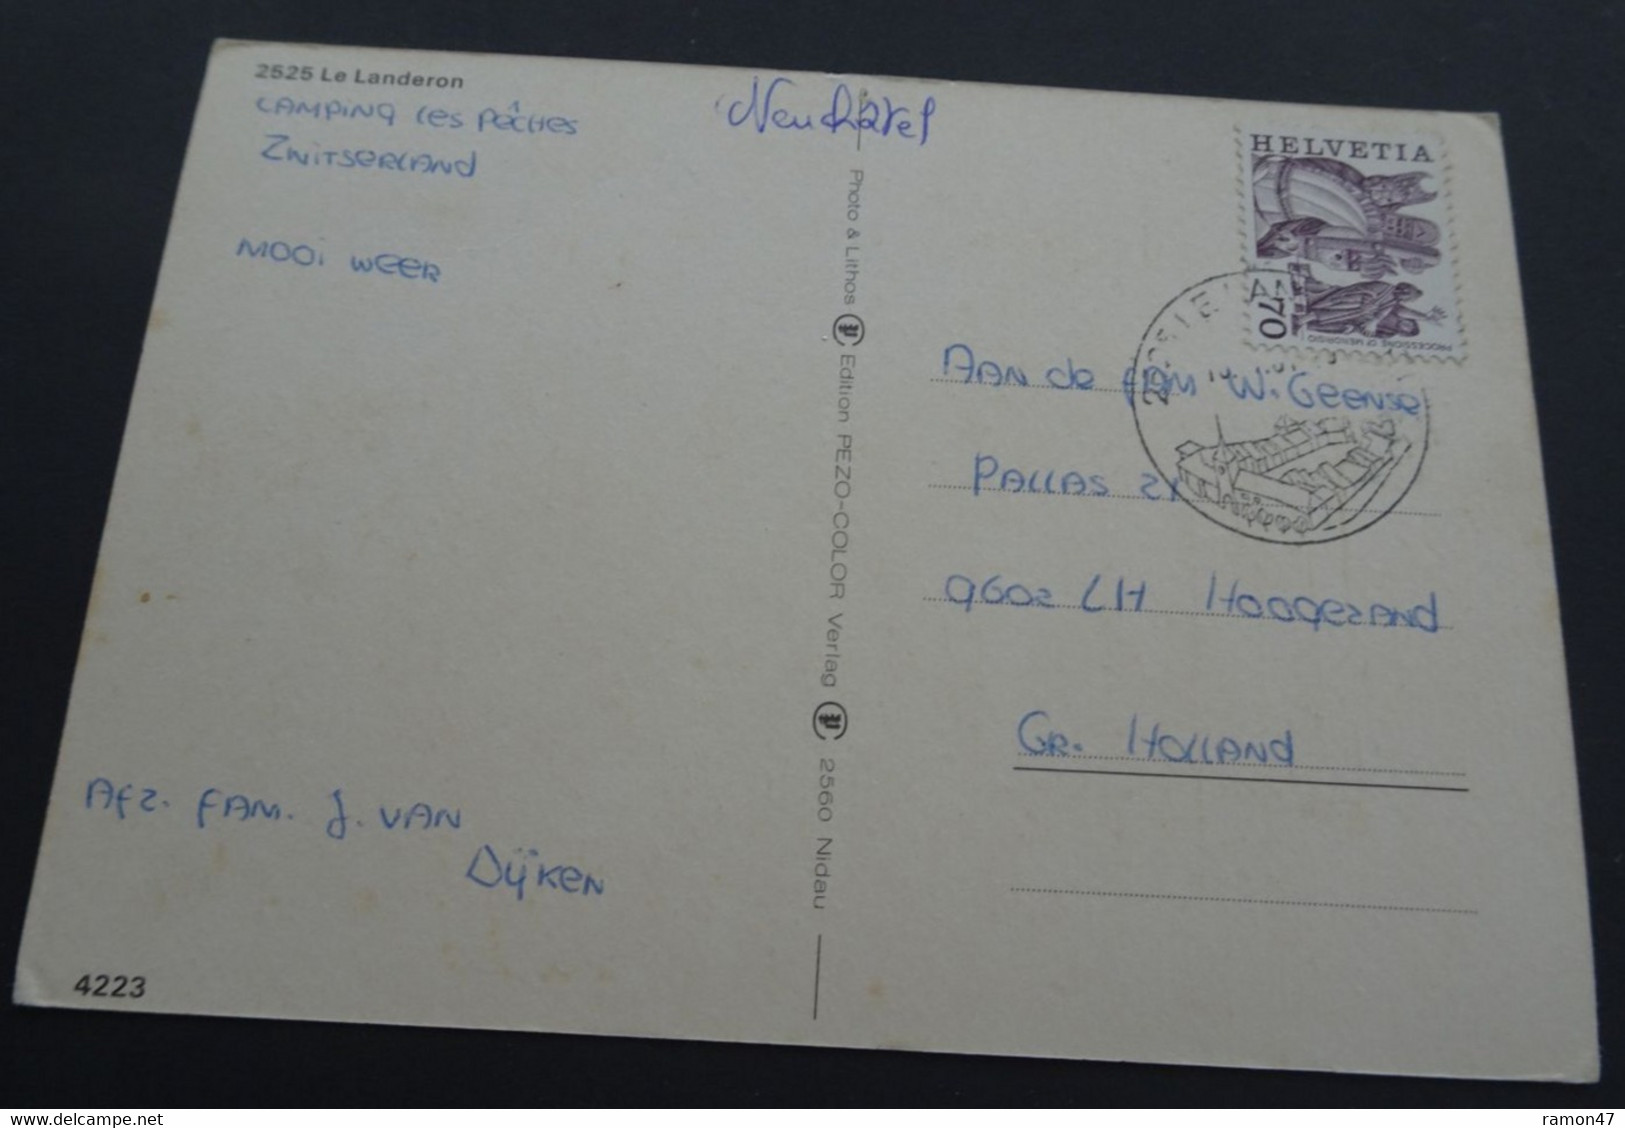 2525 Le Landeron
CAMPING Les PÊCHES
ZWITSERLAND
MOOI WEER
Afz. FAM. J. VAN
DIJKEN
4223
Neuchâtel
Photo & Lithos Edition PEZO-COLOR Verlag 2560 Nidau
HELVETIA
70
PROCESSIONS DI MENDRISIO
AAN de FAM W. Geense
PALLAS 21
9602 LH HOOGEZAND
GR. HOLLAND
ramon47